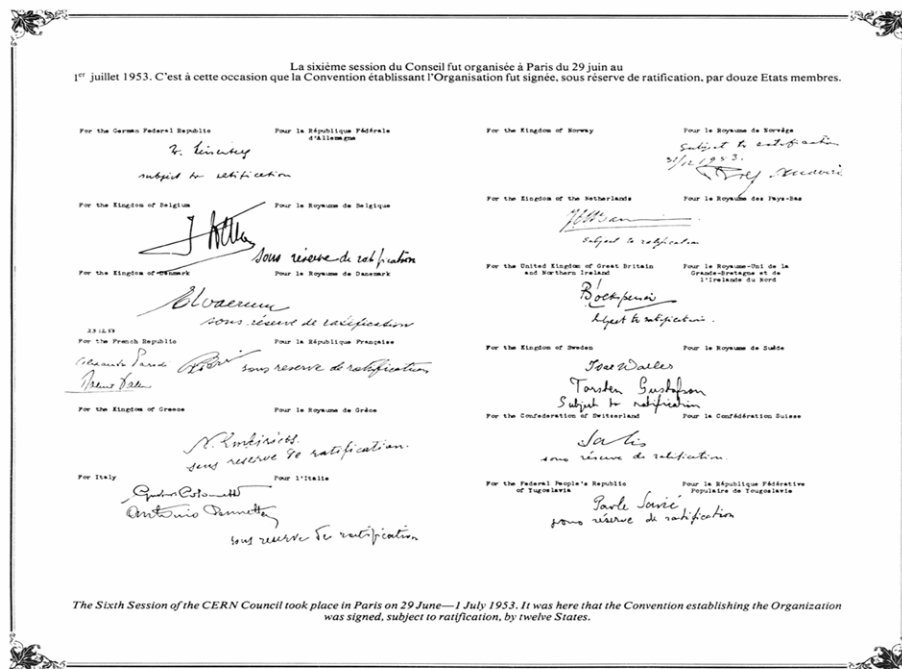 La sixième session du Conseil fut organisée à Paris du 29 juin au
1er juillet 1953. C'est à cette occasion que la Convention établissant l'Organisation fut signée, sous réserve de ratification, par douze Etats membres.
For the German Federal Republic
Pour la République Fédérale
d'Allemagne
subject to ratification
For the Kingdom of Belgium
Pour le Royaume de Belgique
sous réserve de ratification
For the Kingdom of Denmark
Pour le Royaume de Danemark
sous réserve de ratification
For the French Republic
Pour la République Française
sous reserve de ratification
For the Kingdom of Greece
Pour le Royaume de Grèce
sous reserve de ratification.
For Italy
Pour l'Italie
Antonio
sous reserve de ratification
For the Kingdom of Norway
Pour le Royaume de Norvège
subject to ratification
1953.
For the Kingdom of the Netherlands
Pour le Royaume des Pays-Bas
subject to ratification
For the United Kingdom of Great Britain
and Northern Ireland
Pour le Royaume-Uni de la
Grande-Bretagne et de
l'Irelande du Nord
subject to ratification.
For the Kingdom of Sweden
Pour le Royaume de Suède
Torsten Gustafson
Subject to ratification
For the Confederation of Switzerland
Pour la Confédération Suisse
sous réserve de ratification.
For the Federal People's Republic
of Yugoslavia
Pour la République Fédérative
Populaire de Yougoslavie
Pavle Savić
sous réserve de ratification
The Sixth Session of the CERN Council took place in Paris on 29 June—1 July 1953. It was here that the Convention establishing the Organization
was signed, subject to ratification, by twelve States.